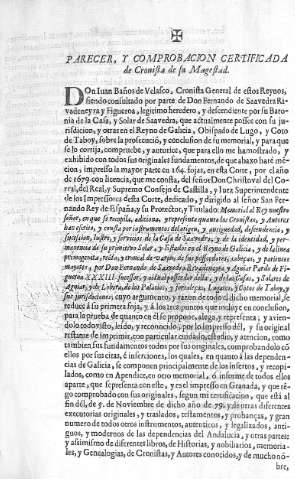 PARECER, Y COMPROBACION CERTIFICADA
de Cronista de su Magestad.
DOn Iuan Baños de Velasco, Cronista General de estos Reynos,
siendo consultado por parte de Don Fernando de Saavedra Ri-
vadeneyra y Figueroa, legitimo heredero, y descendiente por su Ba-
ronia de la Casa, y Solar de Saavedra, que actualmente possee con su ju-
risdicion, y otras en el Reyno de Galicia, Obispado de Lugo, y Coto
de Taboy, sobre la prosecucion, y conclusion de su memorial, y para que
se lo corrija, compruebe, y autorice, que para ello me ha mostrado, y
exhibido con todos sus originales fundamentos, de que abaxo haré mé-
cion, impresso la mayor parte en 164. fojas, en esta Corte, por el año
de 1679 con licencia, que me consta, del señor Don Christoval del Cor-
ral, del Real, y Supremo Consejo de Castilla, y Iuez Superintendente
de los Impressores desta Corte, dedicado, y dirigido al señor San Fer-
nando Rey de España, su Protector, Titulado: Memorial al Rey nuestro
señor, en que se recopila, adiciona, y representa quanto los Cronistas, y Autores
han escrito, y consta por instrumentos del origen, y antiguedad, descendencia, y
sucession, lustre, y servicios de la Casa de Saavedra,
de su primitivo Solar, y Estados en el Reyno de Galicia, y de la linea
primogenita,
mayores, por Don Fernando de Saavedra Rivadeneyra y Aguiar Pardo de Fi-
gueroa XXXIII. sucessor, y actual possedor della, y Solares de
Aguiar, de Libreta, de los Palacios, y fortalezas, Lugares, y Cotos de Taboy, y
sus jurisdiciones: cuyo argumento, y razon de todo dicho memorial, se
reduce á su primera foja, y á los tratados que incluye en conclusion,
para la prueba de quanto en él se propone, alega, y representa, y avien-
dolo todo visto, leido, y reconocido, por lo impresso dél, y su original
restante de imprimir, con particular cuidado, estudio, y atencion, como
tambien sus fundamentos todos por sus originales, comprobandolo có
ellos por sus citas, é inserciones, los quales, en quanto á las dependen-
cias de Galicia, se componen principalmente de los insertos, y recopi-
lados, como en Apendice, en otro memorial, ó informe de todos ellos
aparte, que se presenta con este, y es el impresso en Granada, y que té-
go comprobado con sus originales, segun mi certificacion, que está al
fin dél, de 9. de Noviembre de dicho año de 79. y de otras diferentes
executorias originales, y traslados, testamentos, y probanças, y gran
numero de todos otros instrumentos, autenticos, y legalizados, anti-
guos, y modernos de las dependencias del Andalucia, y otras partes: y
assimismo de diferentes libros, de Historias, y nobiliarios, memoria-
les, y Genealogias, de Cronistas, y Autores conocidos, y de mucho nó-
bre,